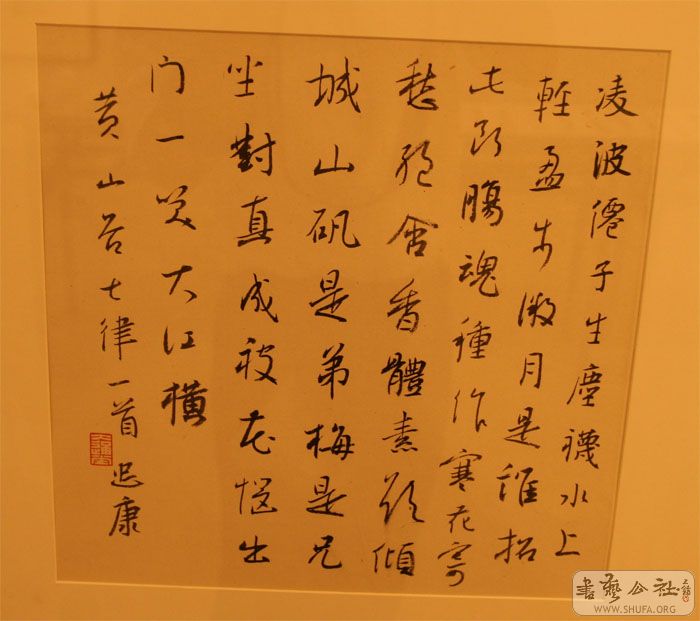 凌波僊子生塵襪水上
輕盈步微月是誰招
此断腸魂種作寒花寄
愁絕含香體素欲傾
城山矾是弟梅是兄
坐對真成被花惱出
门一笑大江橫
黄山谷七律一首 康
書藝公社
WWW.SHUFA.ORG